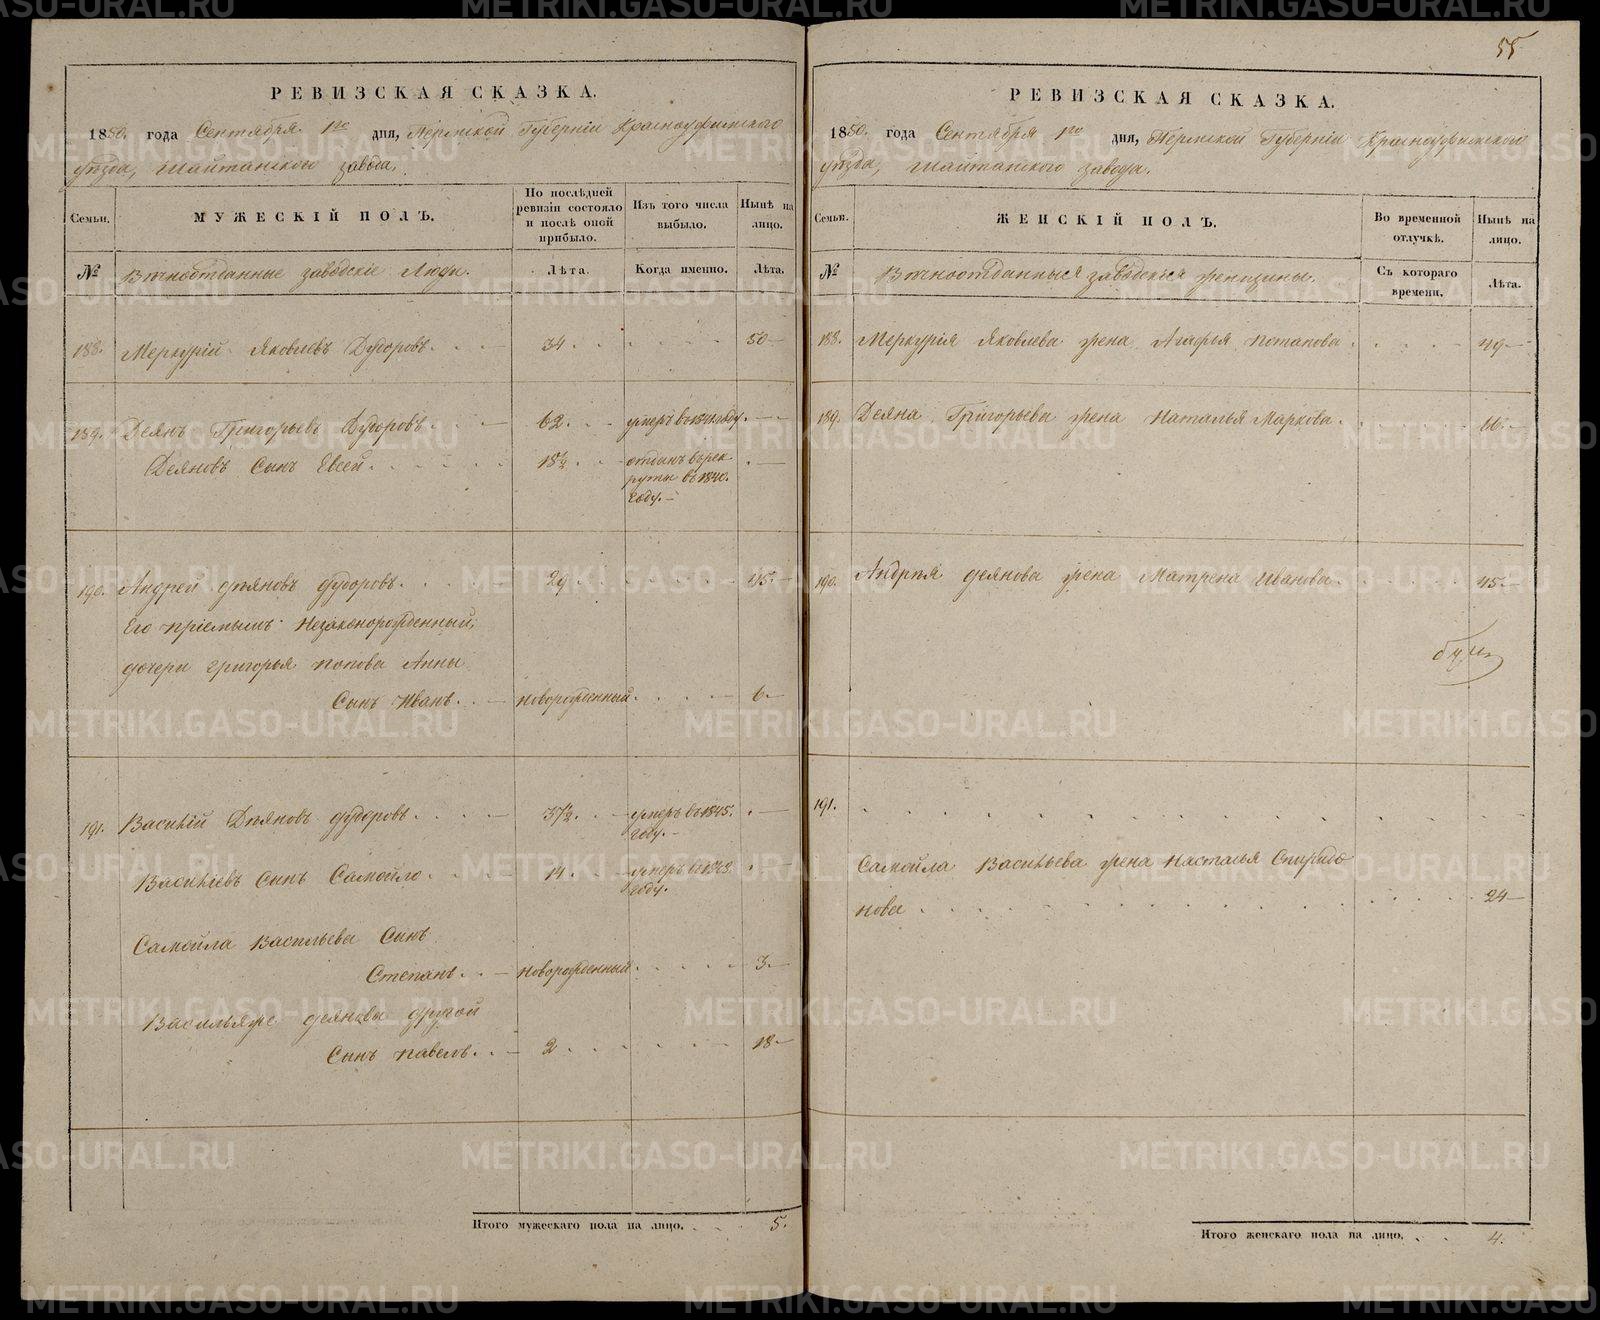 55
РЕВИЗСКАЯ СКАЗКА.
1850. года Сентября 1го дня, Пермской Губерніи Красноуфимского
уѣзда, Шайтанского завода.
Семьи.
МУЖЕСКІЙ ПОЛЪ.
По послѣдней ревизіи состояло и послѣ оной прибыло.
Изъ того числа выбыло.
Нынѣ на лицо.
№
Вѣчноотданные заводскіе Люди.
Лѣта.
Когда именно.
Лѣта.
188. Меркурій Яковлевъ Дудоровъ. 34. 50
189. Деянъ Григорьевъ Дудоровъ. 62. умеръ въ году.
Деяновъ Сынъ Евсей. 18½. отданъ въ рек
руты въ 1840.
году.
190. Андрей Дѣяновъ Дудоровъ. 29. 45.
Его пріемышъ Незаконорожденный,
дочери Григорья Попова Анны
Сынъ Иванъ. новорожденный. 6.
191. Василій Дѣяновъ Дудоровъ. 37½. умеръ въ 1845.
году.
Васильевъ Сынъ Самойло. 14. умеръ въ
году.
Самойла Васильева Сынъ
Степанъ. новорожденный. 3.
Васильяже Деянова другой
Сынъ Павелъ. 2. 18.
Итого мужескаго пола на лицо. 5.
РЕВИЗСКАЯ СКАЗКА.
1850. года Сентября 1го дня, Пермской Губерніи Красноуфимской
уѣзда, Шайтанского завода.
Семьи.
ЖЕНСКІЙ ПОЛЪ.
Во временной отлучкѣ.
Нынѣ на лицо.
№
Вѣчноотданныя заводскія женщины.
Съ котораго времени.
Лѣта.
188. Меркурія Яковлева жена Агафья Потапова. 49.
189. Деяна Григорьева жена Наталья Маркова. 66.
190. Андрѣя Деянова жена Матрена Иванова. 45.
191.
Самойла Васильева жена Насталья Спиридо
нова. 24
Итого женскаго пола на лицо. 4.
METRIKI.GASO-URAL.RU